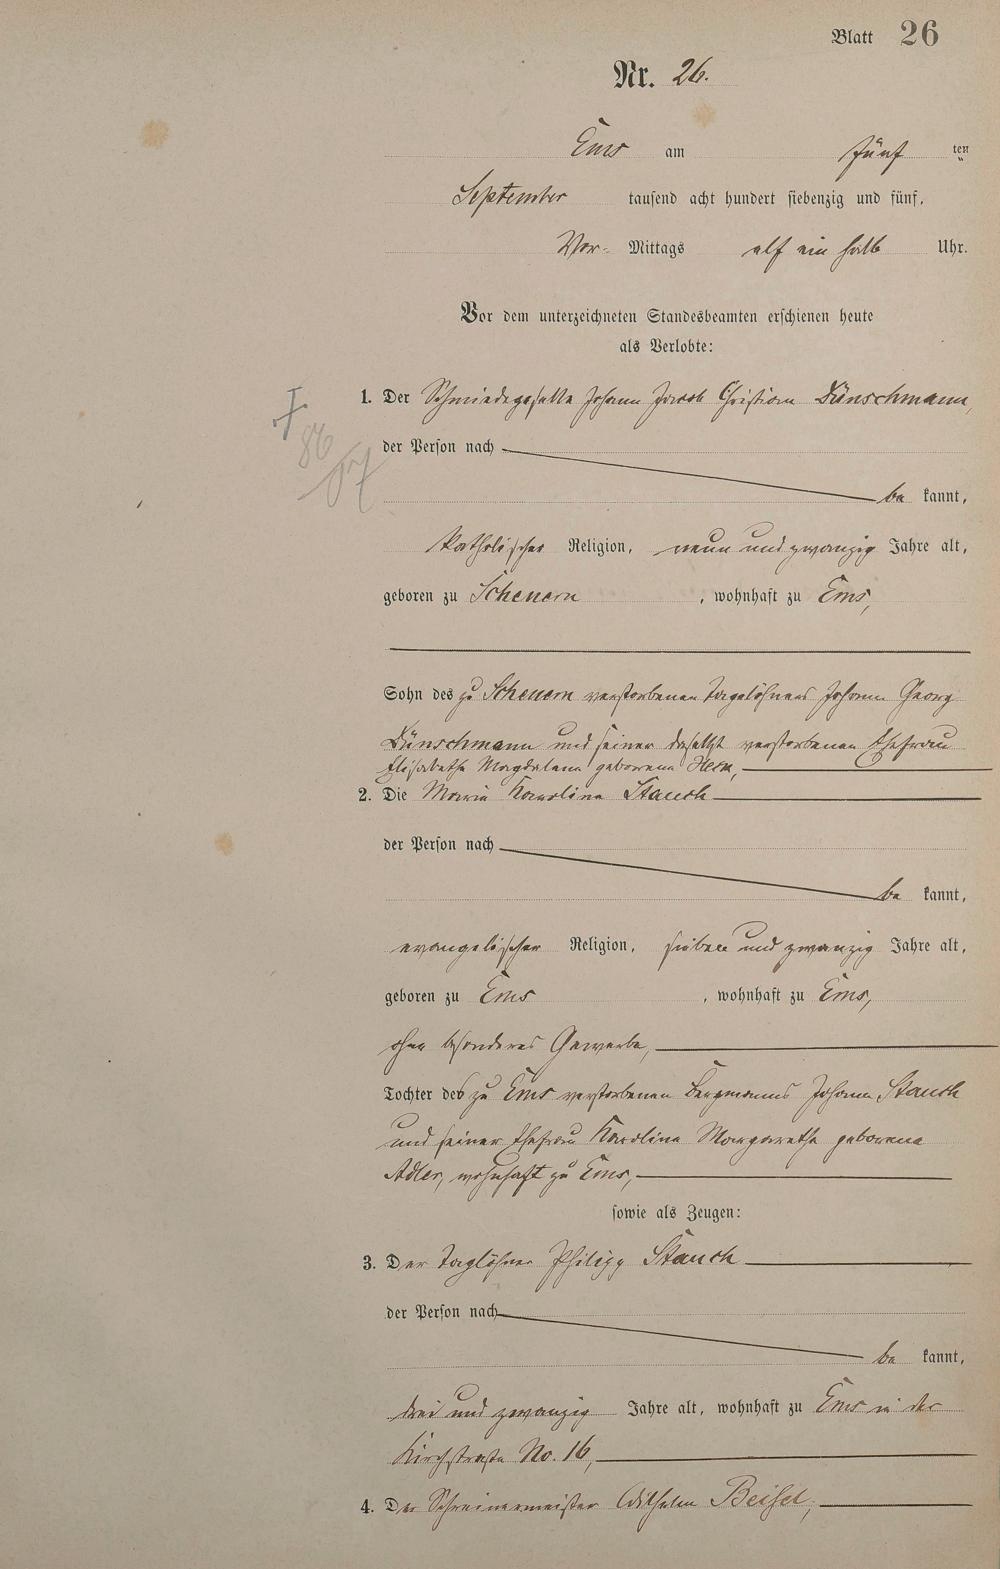 Blatt 26
Nr. 26.
Ems am fünf ten
September tausend acht hundert siebenzig und fünf,
Vor- Mittags elf ein halb Uhr.
Vor dem unterzeichneten Standesbeamten erschienen heute
als Verlobte:
1. Der Schmiedegeselle Johann Jacob Christian Dünschmann,
der Person nach
be kannt,
katholischer Religion, neun und zwanzig Jahre alt,
geboren zu Scheuern , wohnhaft zu Ems,
Sohn des zu Scheuern verstorbenen Tagelöhners Johann Georg
Dünschmann und seiner daselbst verstorbenen Ehefrau
Elisabetha Magdalena geborene
2. Die Maria Karolina Stauch
der Person nach
be kannt,
evangelischer Religion, sieben und zwanzig Jahre alt,
geboren zu Ems , wohnhaft zu Ems,
ohne besonderes Gewerbe,
Tochter des zu Ems verstorbenen Bergmanns Johann Stauch
und seiner Ehefrau Karolina Margaretha geborene
Adler, wohnhaft zu Ems,
sowie als Zeugen:
3. Der Taglöhner Philipp Stauch
der Person nach
be kannt,
drei und zwanzig Jahre alt, wohnhaft zu Ems in der
Kirchstraße No. 16,
4. Der Schreinermeister Wilhelm Beisel,